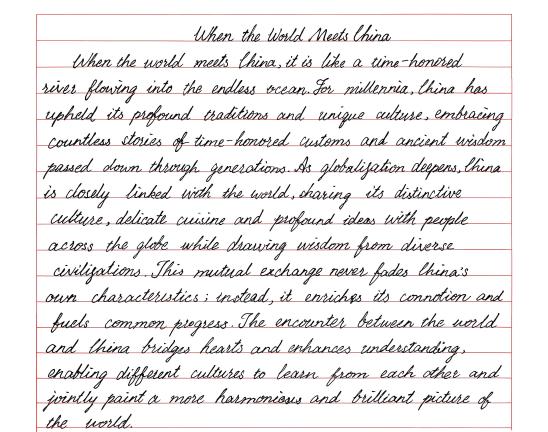 When the World Meets China
When the world meets China, it is like a time-honored
river flowing into the endless ocean. For millennia, China has
upheld its profound traditions and unique culture, embracing
countless stories of time-honored customs and ancient wisdom
passed down through generations. As globalization deepens, China
is closely linked with the world, sharing its distinctive
culture, delicate cuisine and profound ideas with people
across the globe while drawing wisdom from diverse
civilizations. This mutual exchange never fades China's
own characteristics; instead, it enriches its connotion and
fuels common progress. The encounter between the world
and China bridges hearts and enhances understanding,
enabling different cultures to learn from each other and
jointly paint a more harmonious and brilliant picture of
the world.